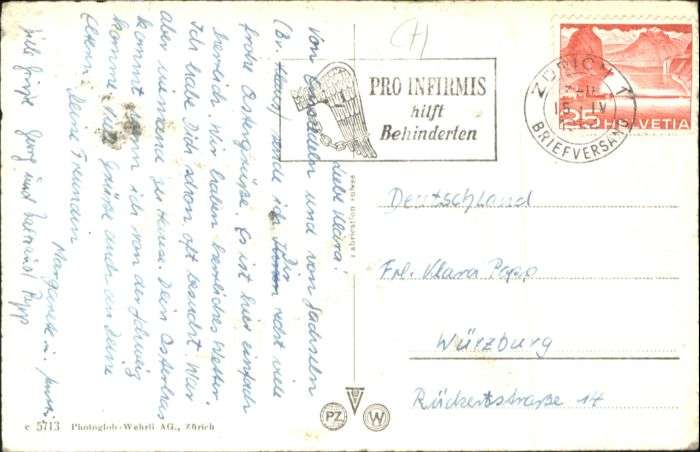 Liebe Klara!
Von Einsiedeln und von Sachseln
(Br. Klaus) sende ich Dir recht viele
frohe Ostergrüße. Es ist hier einfach
herrlich. Wir haben herrliches Wetter.
Ich habe Dich schon oft besucht. War
aber niemand zu Hause. Dein Osterhas
kommt wenn ich von der Schweiz
komme. Viele Grüße auch an Deine
Eltern. Deine Freundin
Margarete
viele Grüße Georg und Papp
PRO INFIRMIS
hilft
Behinderten
ZÜRICH 1
BRIEFVERSAND
25 HELVETIA
Deutschland
Frl. Klara Papp
Würzburg
Rückertstraße 14
PZ W
c 5713 Photoglob-Wehrli AG., Zürich